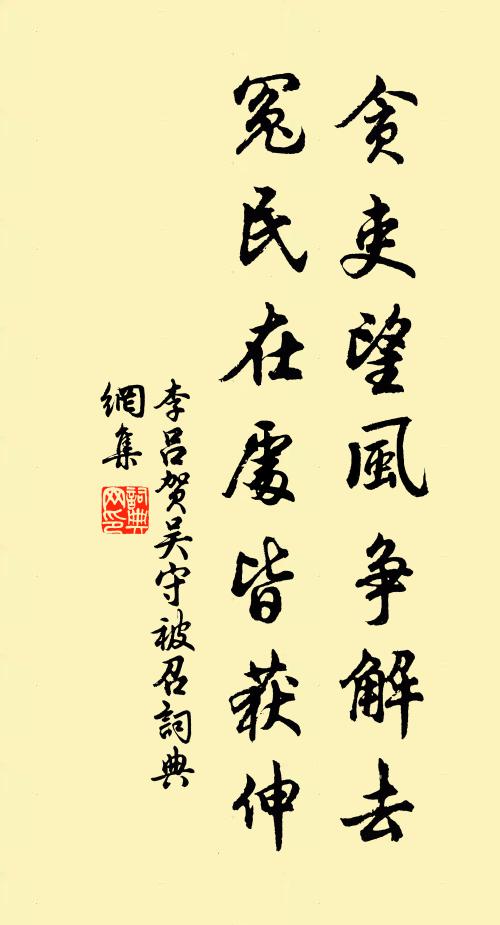 貪吏望風争解去
冤民在處皆获伸
李呂贺吴守被召詞典
網集
詞典
网印